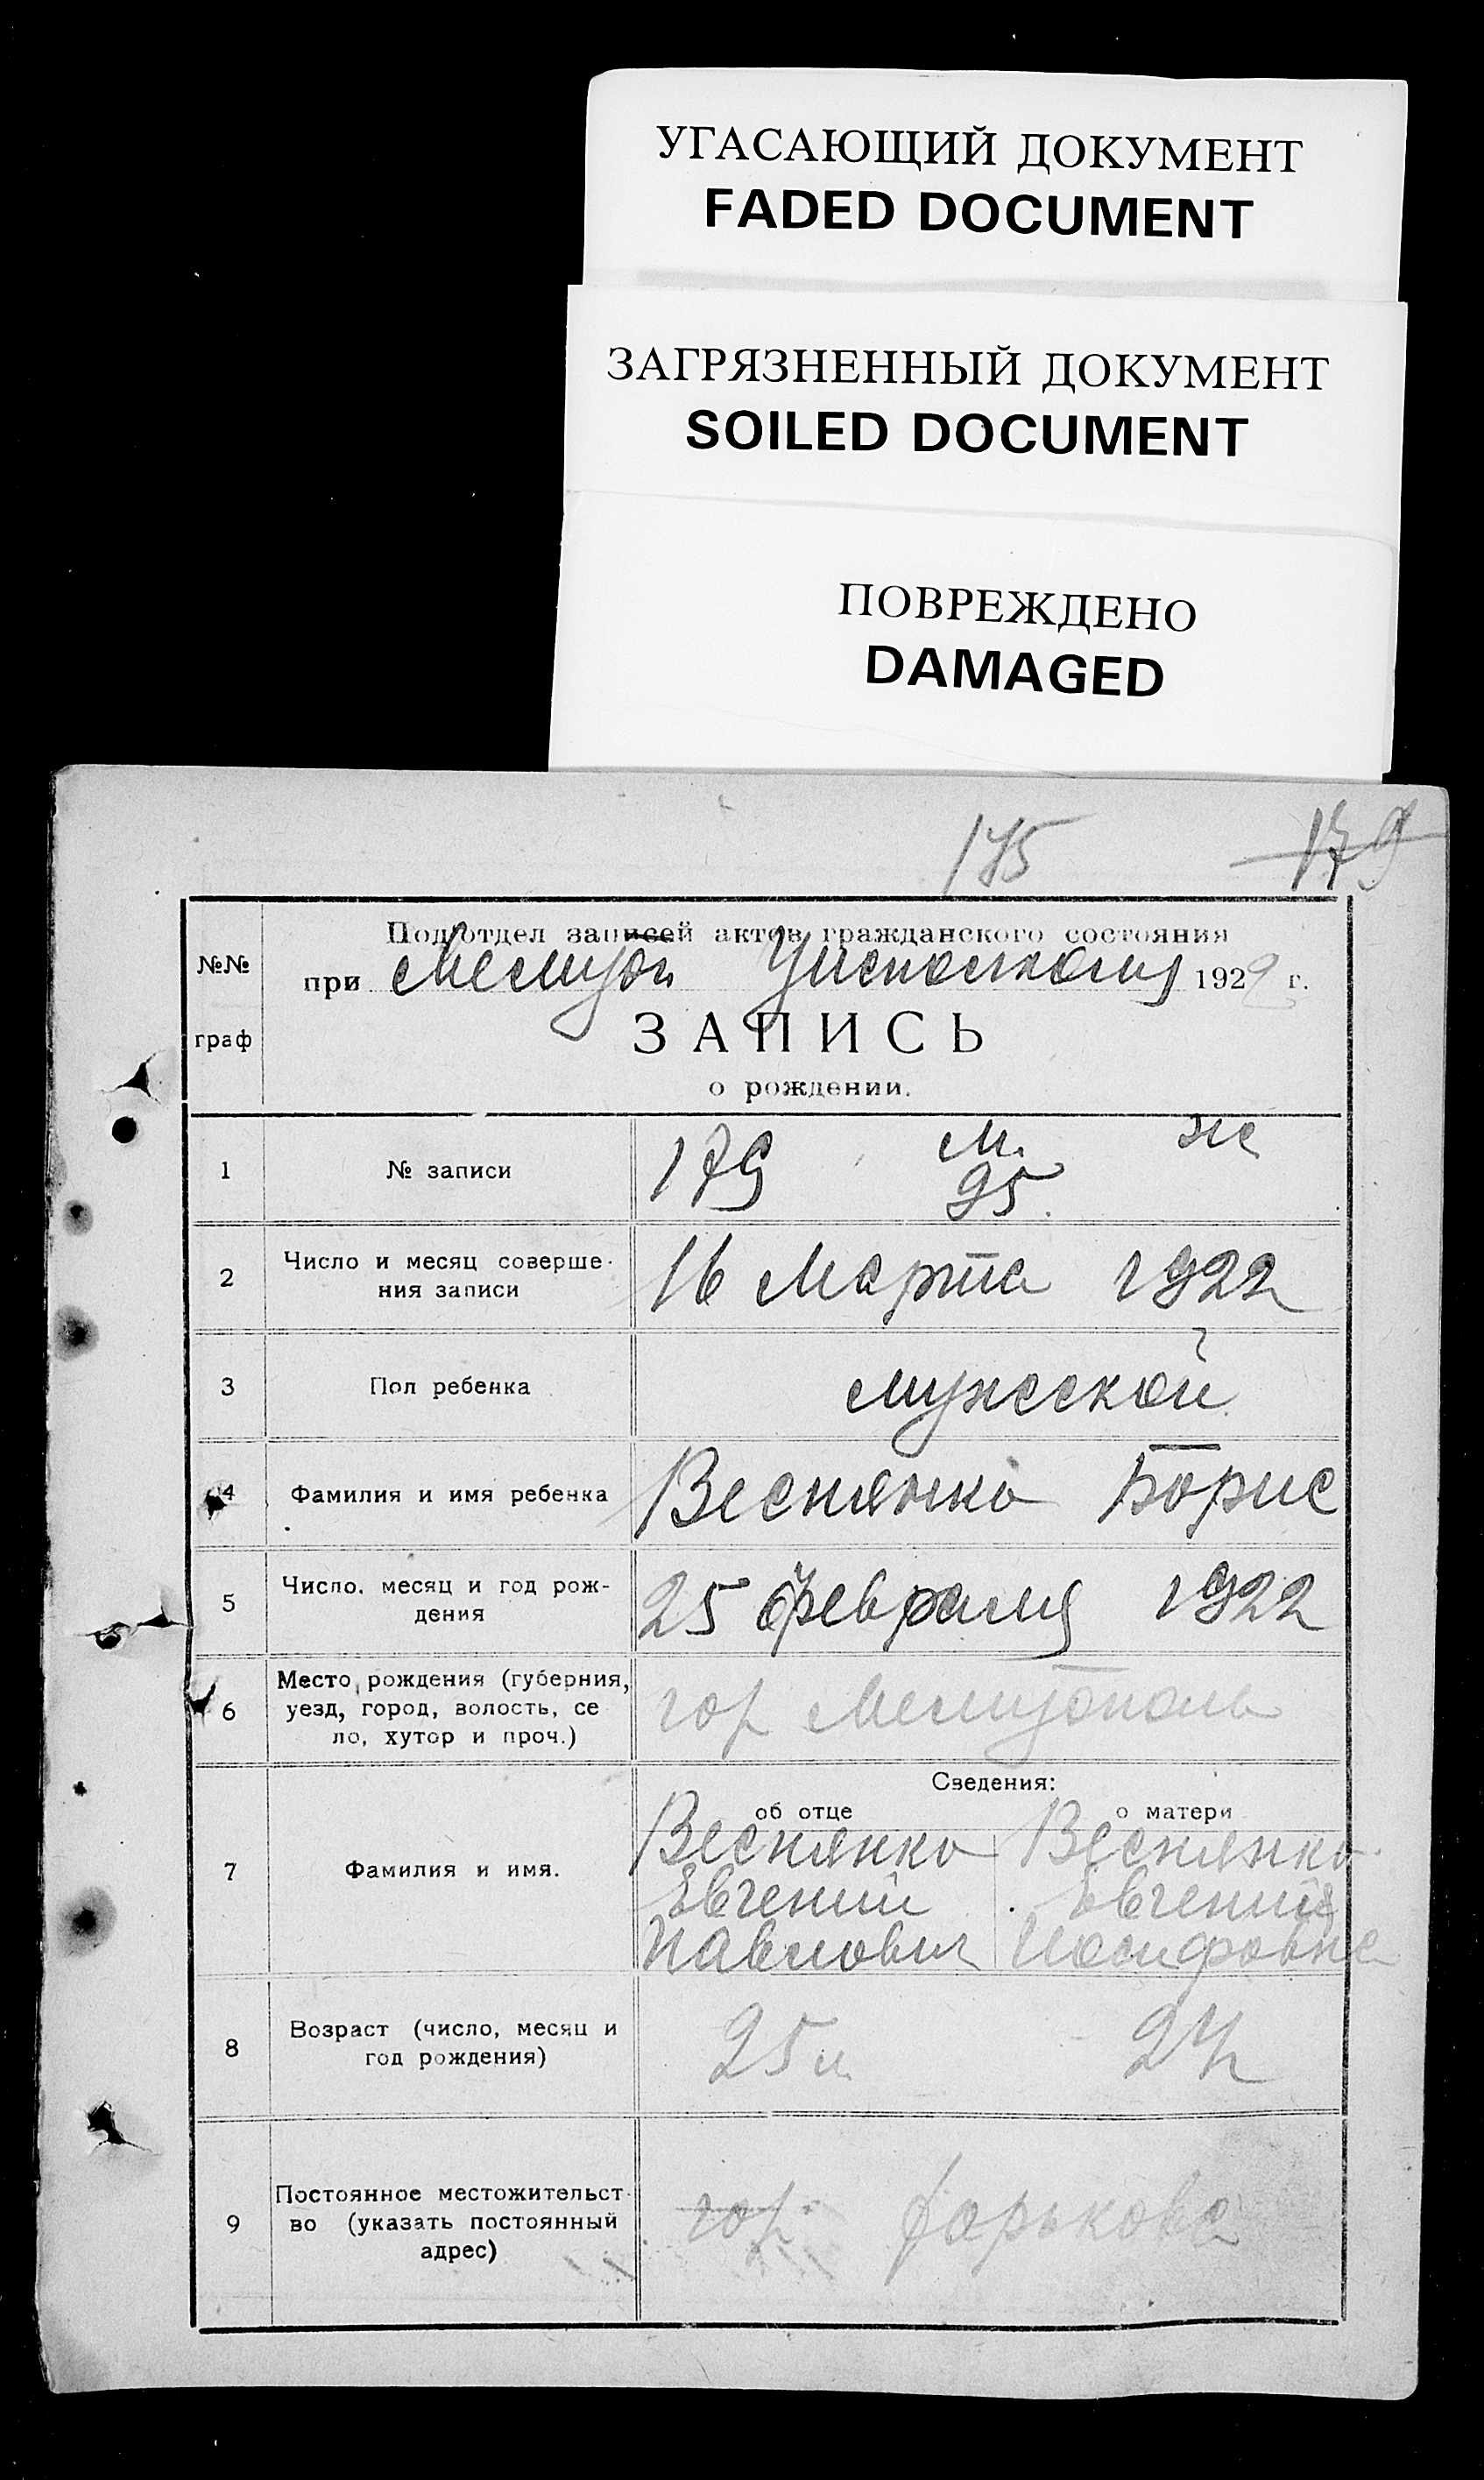 УГАСАЮЩИЙ ДОКУМЕНТ
FADED DOCUMENT
ЗАГРЯЗНЕННЫЙ ДОКУМЕНТ
SOILED DOCUMENT
ПОВРЕЖДЕНО
DAMAGED
175 179
№№ граф
Подотдел записей актов гражданского состояния
при 1922 г.
ЗАПИСЬ
о рождении.
1 № записи 179 м. 95. же
2 Число и месяц соверше-
ния записи 16 Марта 1922
3 Пол ребенка мужской
4 Фамилия и имя ребенка Веснянко Борис
5 Число. месяц и год рож-
дения 25 февраля 1922
6 Место рождения (губерния,
уезд, город, волость, се
ло, хутор и проч.) гор Мелитополь
Сведения:
об отце о матери
7 Фамилия и имя. Веснянко Веснянко
Евгений Евгения
Павлович Иосифовна
8 Возраст (число, месяц и
год рождения) 25 л 24
9 Постоянное местожительст-
во (указать постоянный
адрес) гор.